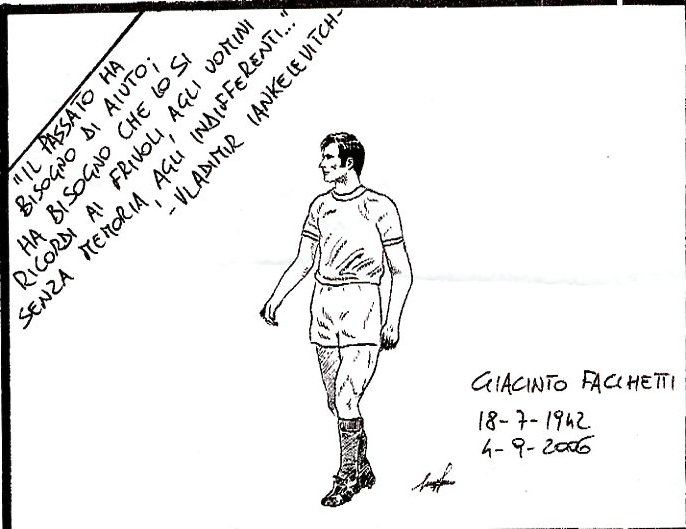 "IL PASSATO HA
BISOGNO DI AIUTO;
HA BISOGNO CHE LO SI
RICORDI AI FRIVOLI, AGLI UOMINI
SENZA MEMORIA, AGLI INDIFFERENTI..."
-VLADIMIR IANKELEVITCH-
GIACINTO FACCHETTI
18-7-1942
4-9-2006